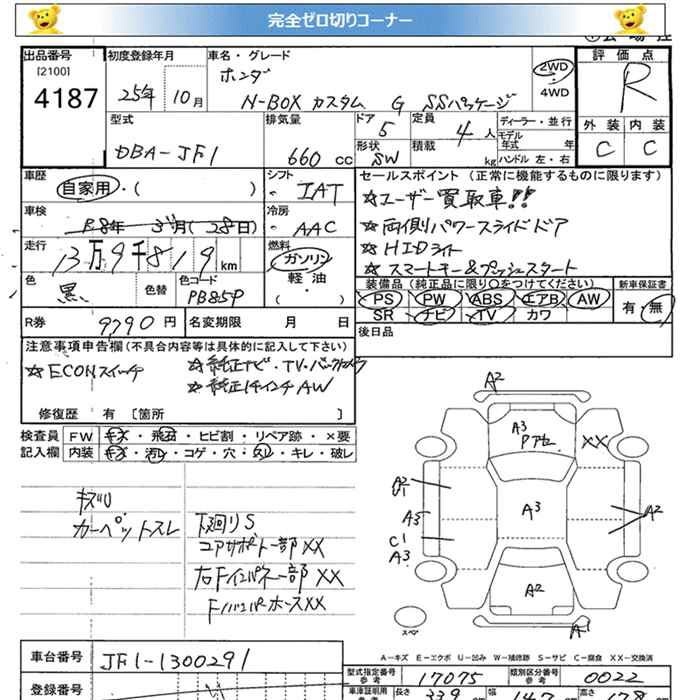 完全ゼロ切りコーナー
出品番号 初度登録年月 車名・グレード 評価点
[2100] ホンダ 2WD
4187 25年 10月 N-BOX カスタム G SSパッケージ 4WD R
型式 排気量 ドア 定員 ディーラー・並行 外装 内装
DBA-JF1 660cc 5 4人 モデル年式 年 C C
形状 SW 積載 kg ハンドル 左・右
車歴 シフト セールスポイント(正常に機能するものに限ります)
自家用・( ) IAT ☆ユーザー買取車!!
車検 冷房 ☆両側パワースライドドア
R8年 3月(28日) AAC ☆HIDライト
走行 燃料 ☆スマートキー&プッシュスタート
13万9千819km ガソリン
軽油
色 色替 色コード 装備品(純正品に限り○をつけてください) 新車保証書
黒 PB85P PS PW ABS エアB AW 有 無
SR ナビ TV カワ
R券 9790円 名変期限 月 日 後日品
注意事項申告欄(不具合内容等は具体的に記入して下さい)
☆ECONスイッチ ☆純正ナビ・TV・バックカメラ
☆純正14インチAW
修復歴 有 〔箇所 〕
検査員 FW キズ・飛石・ヒビ割・リペア跡・×要
記入欄 内装 キズ・汚レ・コゲ・穴・スレ・キレ・破レ
A2
A3
XX
キズU
カーペットスレ
下廻りS
コアサポート一部XX
右Fインパネ一部XX
Fバンパーホース XX
A3
A2
A3
C1
A3
A2
A1
スペア
A-キズ E-エクボ U-凹み W-補修跡 S-サビ C-腐食 XX-交換済
車台番号 JF1-1300291
型式指定番号 参考 17075 類別区分番号 参考 0022
登録番号
車庫証明用 長さ 339 幅 147 高さ 178